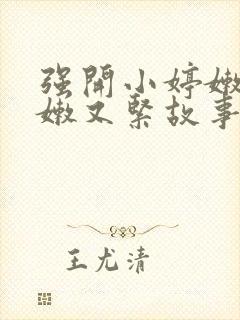 强開小婷嫩
嫩又緊故事
王尤清